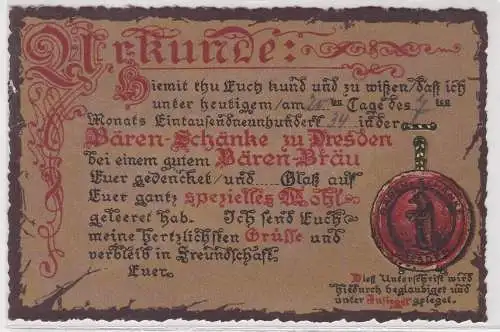 Urkunde:
Hiemit thu Euch kund und zu wißen/daß ich
unter heutigem/am 20. ten Tage des 7 ten
Monats Eintausendneunhundert 34 in der
Bären-Schänke zu Dresden
bei einem gutem Bären-Bräu
Euer gedencket/und.....Glaß auf
Euer gantz spezielles Wohl
geleeret hab. Ich send Euch
meine hertzlichsten Grüsse und
verbleib in Freundschaft
Euer.
Dieß Unterschrift wird
hiedurch beglaubiget und
unter Insiegel gelegel.